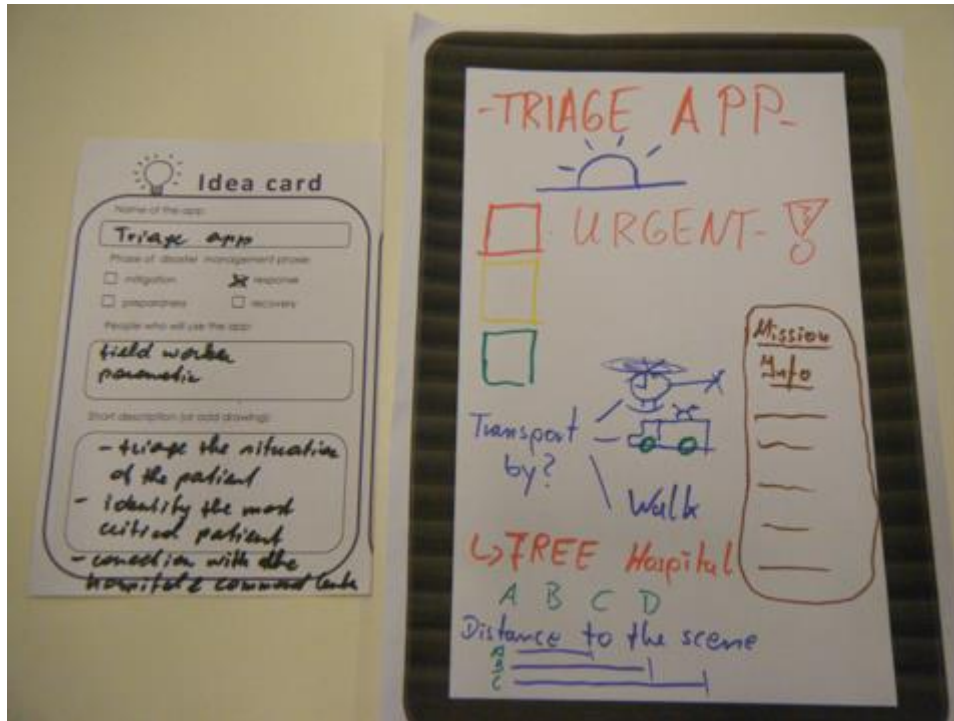 Idea card
Name of the app:
Triage app
Phase of disaster management phase:
mitigation
response
preparedness
recovery
People who will use the app:
field worker
paramedic
Short description (or add drawing):
- triage the situation
of the patient
- identity the most
critical patient
- conection with the
hospital & command
-TRIAGE APP-
URGENT-
Mission
Info
Transport
by?
Walk
FREE Hospital
A B C D
Distance to the scene
A
B
C